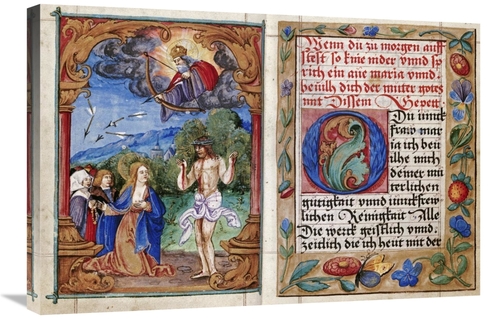 Wenn du zu morgen auff
stest so knie nider vnnd sp
rich ein aue maria vnnd
beuilh dich der muter gotz
mit Dissem Gepett.
Du iunck
fraw mar
ia ich beu
ilhe mich
deiner mu
terlichen
gutigkait vnnd iunckfrew
lichen Reinigkait Alle
Die werck geistlich vnnd
zeitlich die ich heut mit der